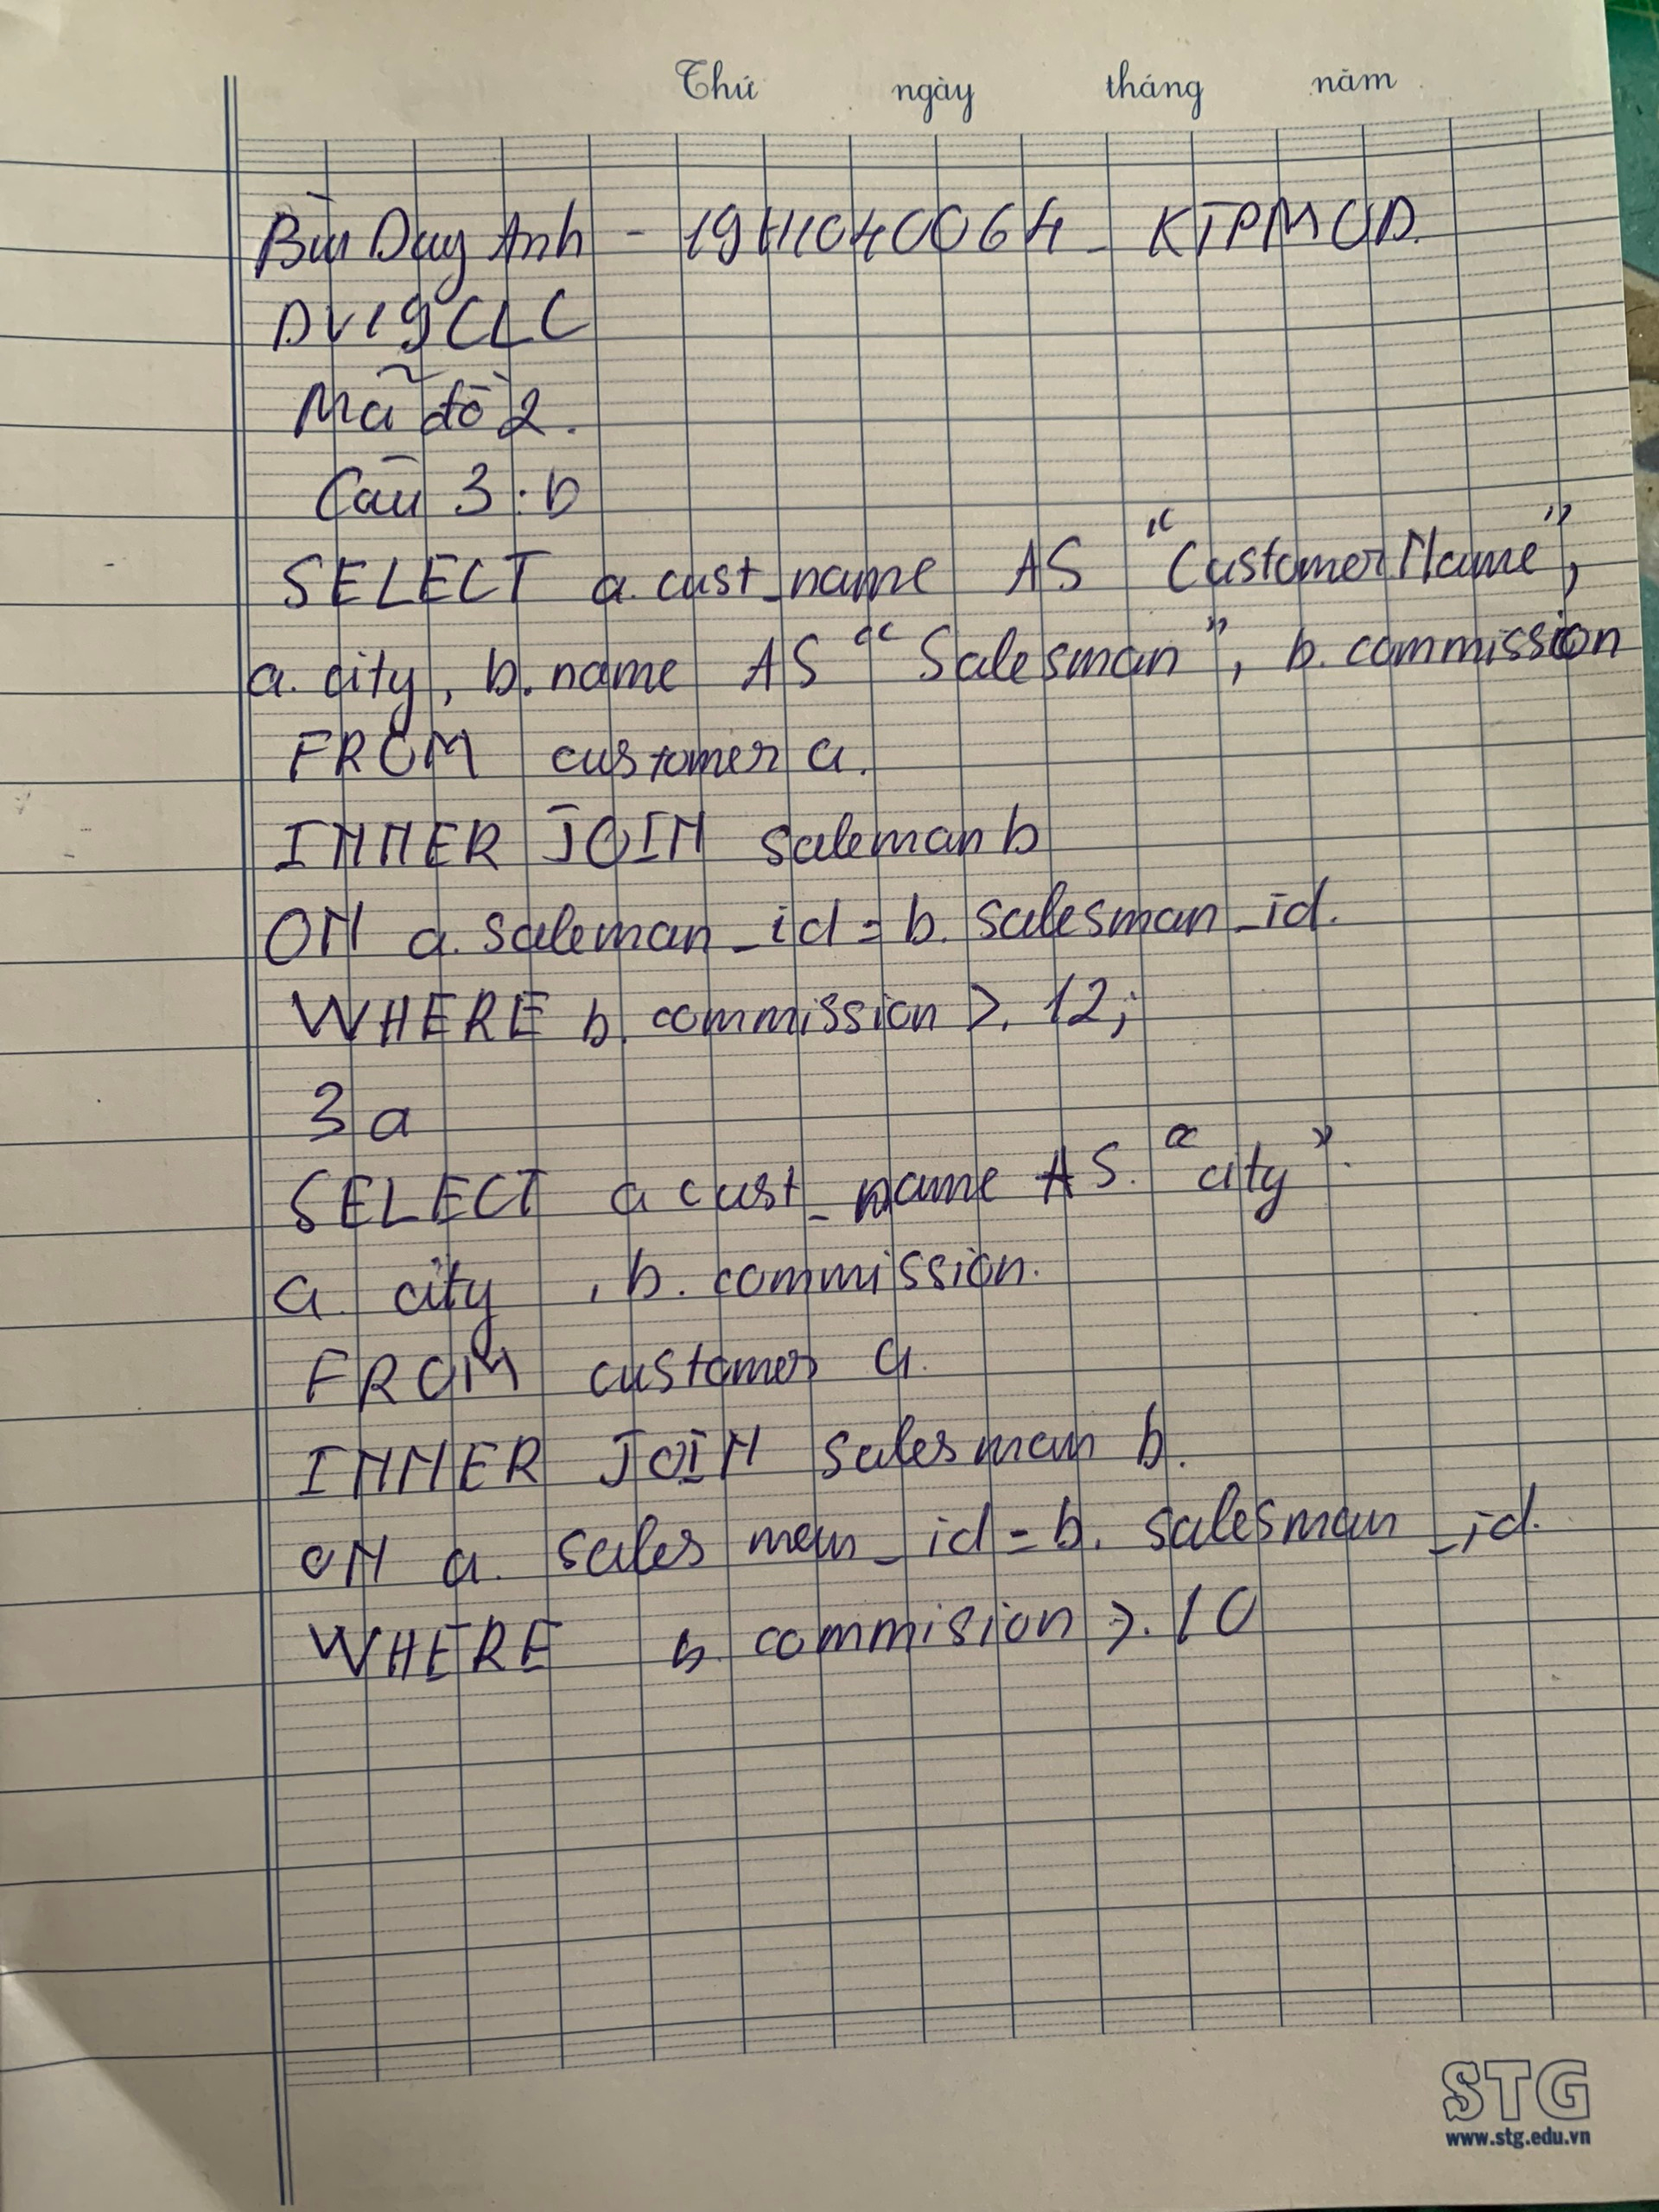 Thứ ngày tháng năm
Bùi Duy Anh - 19H1040064 - KTPMUD.
DV19CLC
Mã đề 2.
Câu 3: b
SELECT a.cust_name AS "CustomerName",
a. city, b. name AS "Salesman", b. commission
FROM customer a.
INNER JOIN saleman b
ON a. saleman_id = b. salesman_id.
WHERE b. commission >. 12;
3a
SELECT a cust_name AS. "city".
a. city , b. commission.
FROM customer a.
INNER JOIN salesman b.
ON a. sales man_id = b. salesman_id.
WHERE b. commision >. 10
STG
www.stg.edu.vn